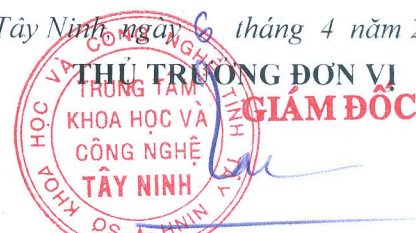 Tây Ninh, ngày 6 tháng 4 năm 2
THỦ TRƯỞNG ĐƠN VỊ
GIÁM ĐỐC
SỞ KHOA HỌC VÀ CÔNG NGHỆ TỈNH TÂY NINH
TRUNG TÂM
KHOA HỌC VÀ
CÔNG NGHỆ
TÂY NINH